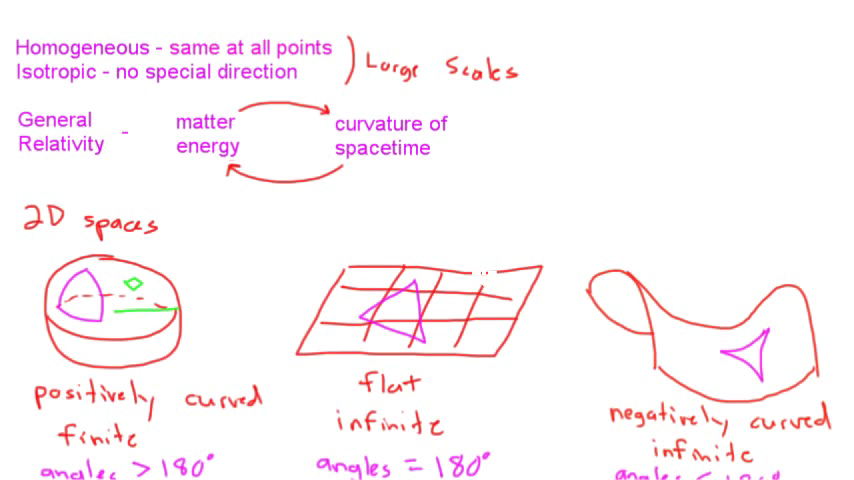 Homogeneous - same at all points
Isotropic - no special direction
Large Scales
General Relativity -
matter energy
curvature of spacetime
2D spaces
positively curved
finite
angles > 180°
flat
infinite
angles = 180°
negatively curved
infinite
angles <